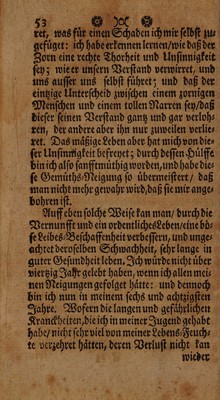 53
ret, was für einen Schaden ich mir selbst zu-
gefüget: ich habe erkennen lernen/ wie daß der
Zorn eine rechte Thorheit und Unsinnigkeit
sey; wie er unsern Verstand verwirret, und
uns ausser uns selbst führet; und daß der
eintzige Unterscheid zwischen einem zornigen
Menschen und einem tollen Narren sey/ daß
dieser seinen Verstand gantz und gar verloh-
ren, der andere aber ihn nur zuweilen verlie-
ret. Das mäßige Leben aber hat mich von die-
ser Unsinnigkeit befreyet; durch dessen Hülffe
bin ich also sanfftmüthig worden, und habe die-
se Gemüths-Neigung so übermeistert/ daß
man nicht mehr gewahr wird, daß sie mir ange-
bohren ist.
Auff eben solche Weise kan man/ durch die
Vernunfft und ein ordentliches Leben/ eine bö-
se Leibes-Beschaffenheit verbessern, und unge-
achtet derselben Schwachheit, sehr lange in
guter Gesundheit leben. Ich würde nicht über
viertzig Jahr gelebt haben, wenn ich allen mei-
nen Neigungen gefolget hätte: und dennoch
bin ich nun in meinem sechs und achtzigsten
Jahre. Wofern die langen und gefährlichen
Kranckheiten, die ich in meiner Jugend gehabt
habe/ nicht sehr viel von meiner Lebens-Feuch-
te verzehret hätten, deren Verlust nicht kan
wieder